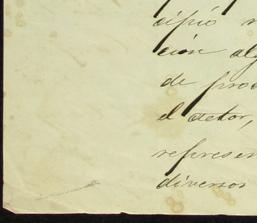 cipió
ción alg
de proc
el actor,
represen
diversos